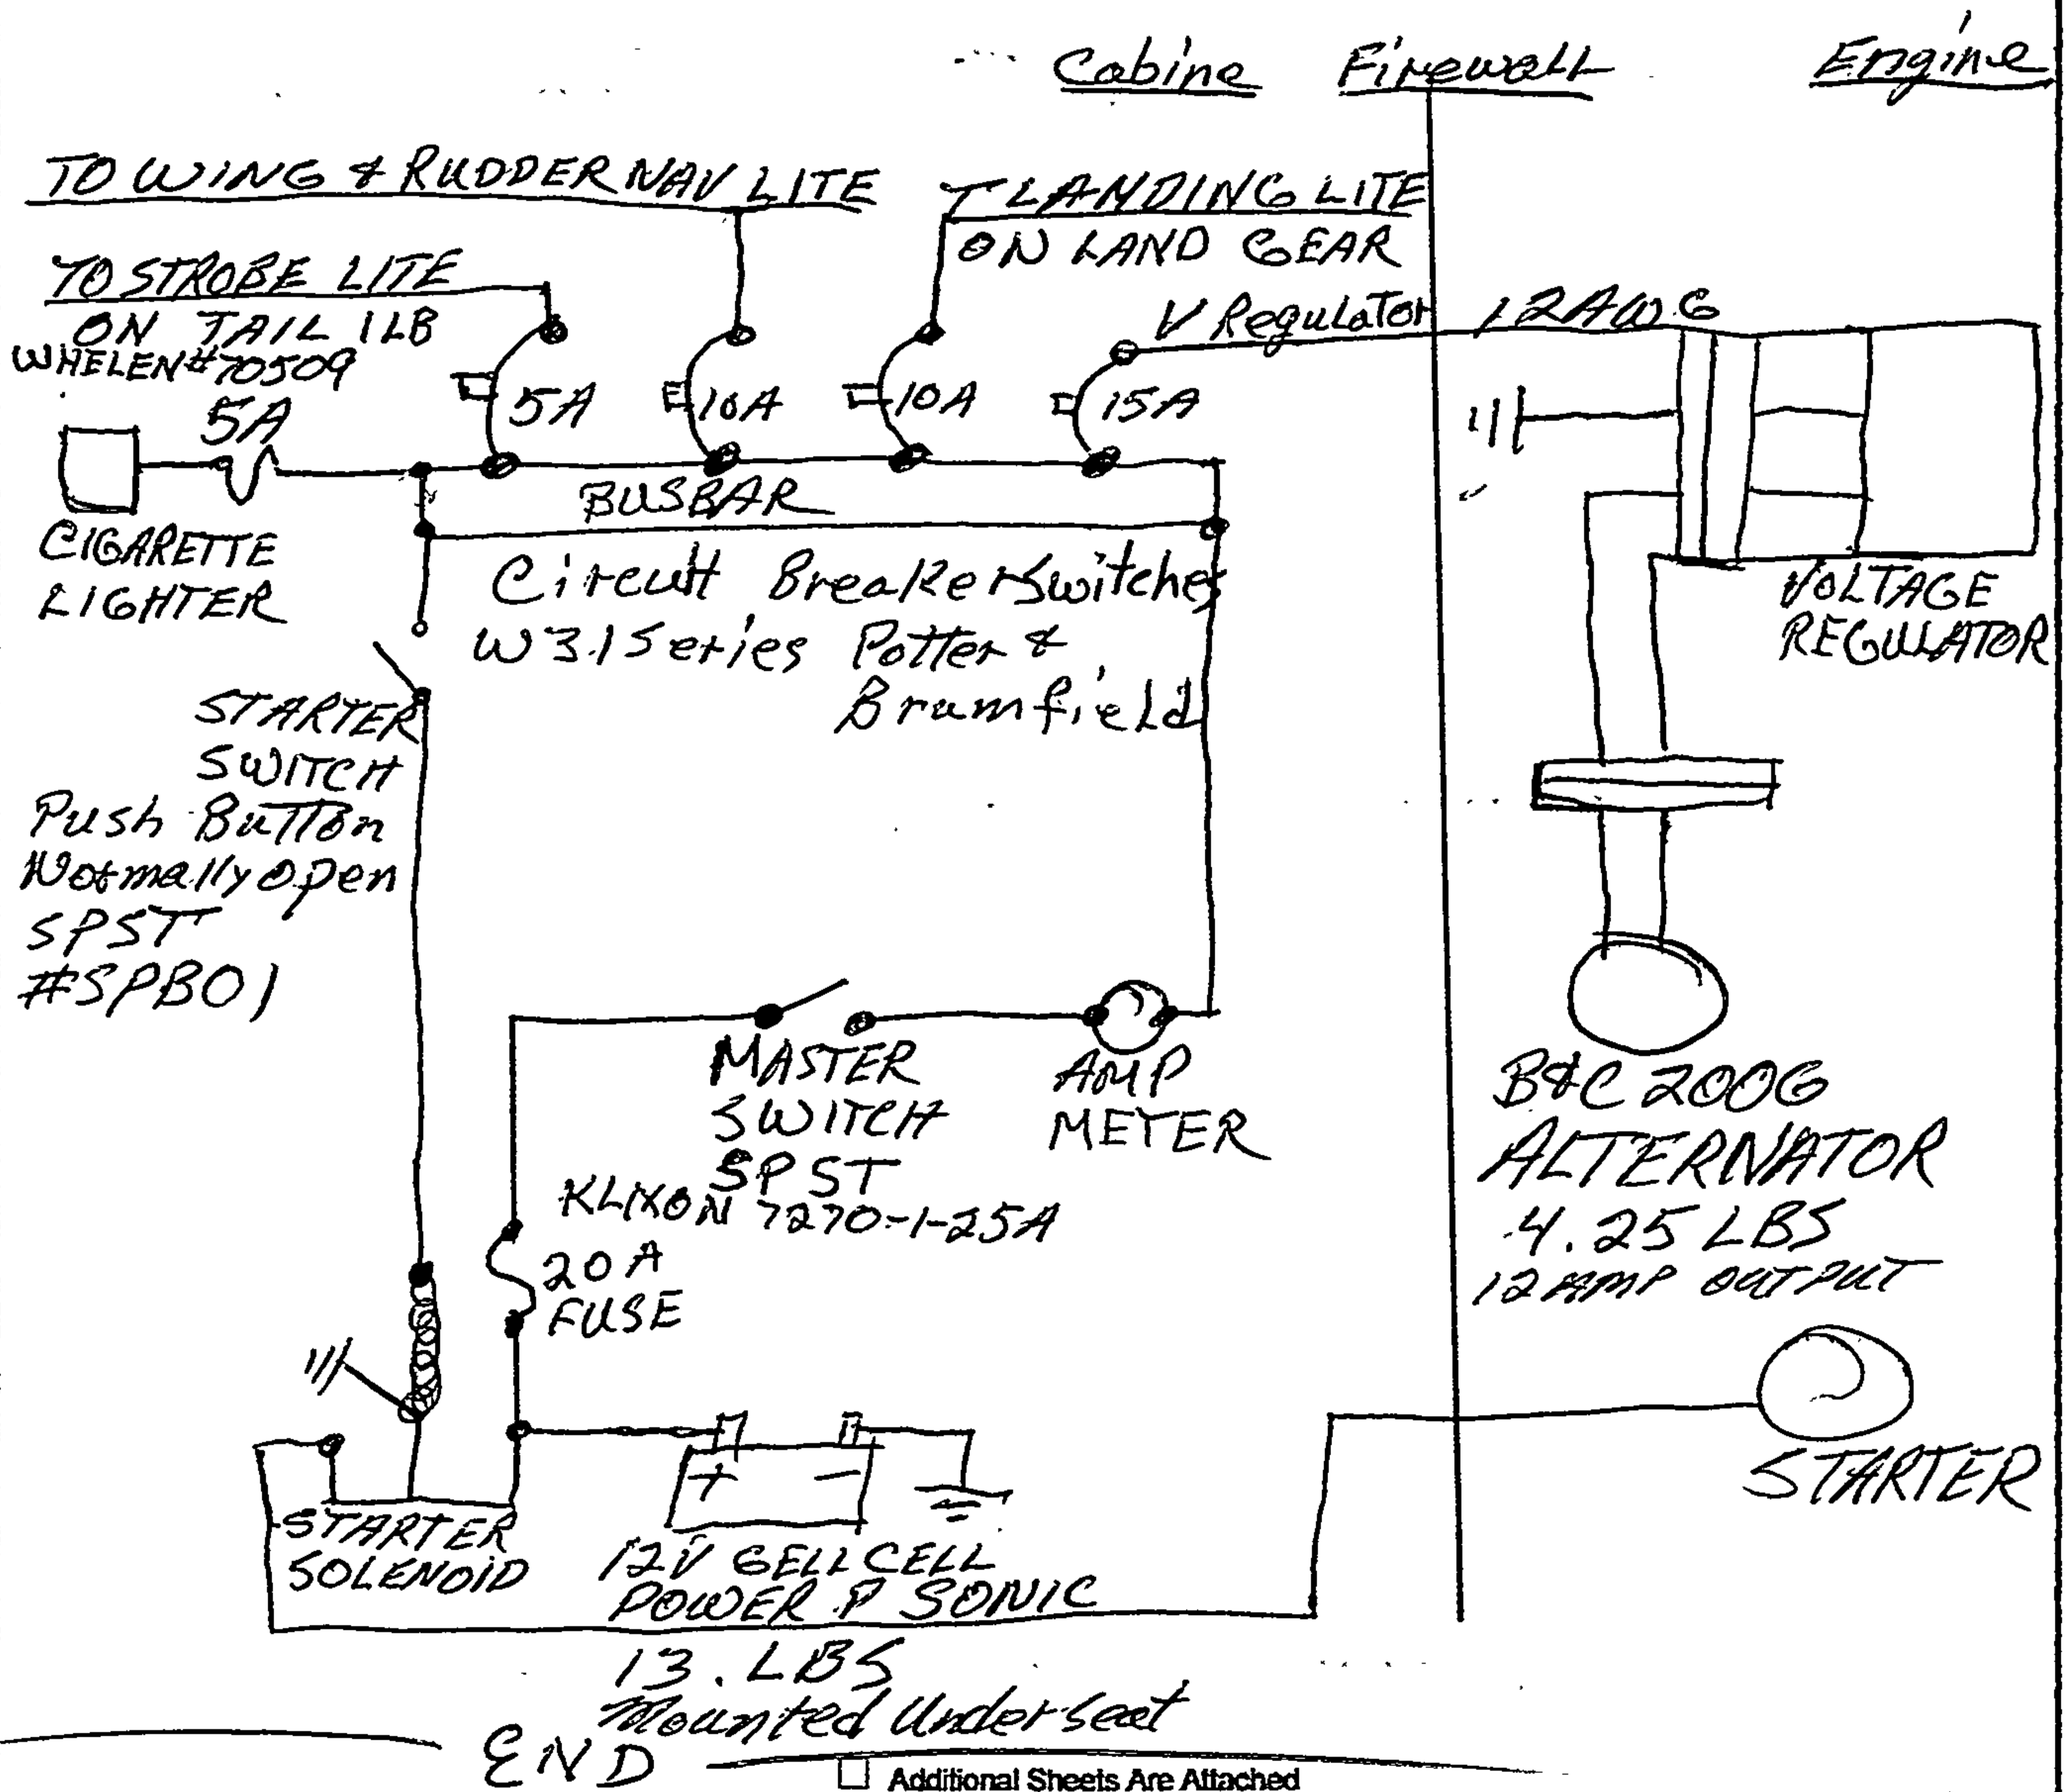 Cabine Firewall Engine
TO WING & RUDDER NAV LITE
T LANDING LITE
ON LAND GEAR
TO STROBE LITE
ON TAIL 1 LB
WHELEN #70509
V Regulator
12 AWG
5A
5A
10A
10A
15A
BUSBAR
CIGARETTE
LIGHTER
Circuit Breaker Switches
W31 Series Potter &
Brumfield
VOLTAGE
REGULATOR
STARTER
SWITCH
Push Button
Normally Open
SPST
#SPB01
MASTER
SWITCH
SPST
AMP
METER
KLIXON 7270-1-25A
20A
FUSE
B&C 200G
ALTERNATOR
4.25 LBS
12 AMP OUTPUT
STARTER
+ −
STARTER
SOLENOID
12V GELL CELL
POWER P SONIC
13. LBS
Mounted Under seat
END
Additional Sheets Are Attached